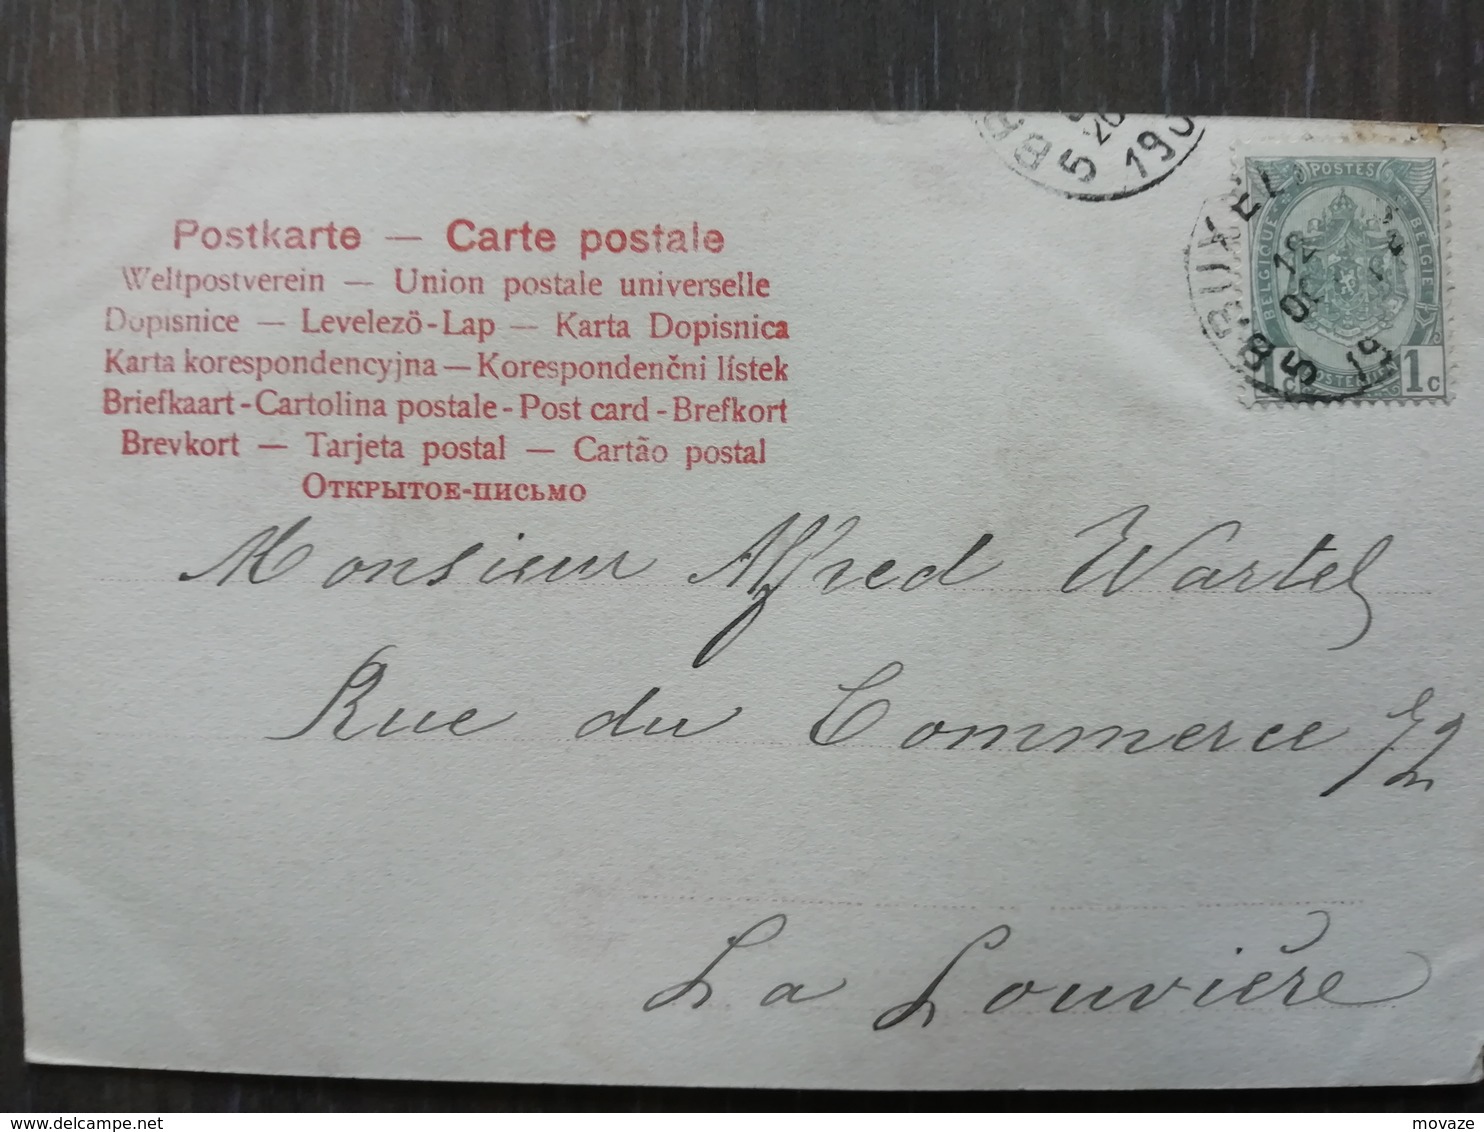 Postkarte — Carte postale
Weltpostverein — Union postale universelle
Dopisnice — Levelező-Lap — Karta Dopisnica
Karta korespondencyjna — Korespondenčni lístek
Briefkaart - Cartolina postale - Post card - Brefkort
Brevkort — Tarjeta postal — Cartão postal
Открытое-письмо
POSTES
BELGIQUE
BELGIE
1c
1c
12
5
5
Monsieur Alfred Wartel
Rue du Commerce 72
La Louvière
delcampe.net
movaze